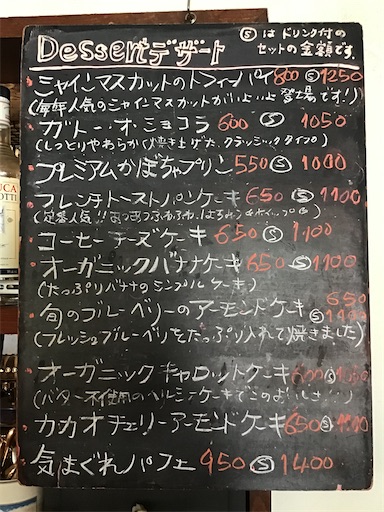 Dessert デザート
Ⓢは ドリンク付の
セットの金額です。
シャインマスカットのトライフルパイ 800 Ⓢ 1250
(毎年人気のシャインマスカットがいよいよ登場です!)
ガトー・オ・ショコラ 600 Ⓢ 1050
(しっとりやわらか焼き上げた クラシックタイプ)
プレミアムかぼちゃプリン 550 Ⓢ 1000
フレンチトーストパンケーキ 650 Ⓢ 1100
(定番人気!!
コーヒーチーズケーキ 650 Ⓢ 1100
オーガニックバナナケーキ 650 Ⓢ 1100
(たっぷりバナナのシンプルケーキ)
旬のブルーベリーのアーモンドケーキ 650
Ⓢ 1100
(フレッシュブルーベリーをたっぷり入れて焼きました)
オーガニックキャロットケーキ
(バター不使用のヘルシーケーキでこのおいしさ
カカオチェリーアーモンドケーキ 650 Ⓢ 1100
気まぐれパフェ 950 Ⓢ 1400